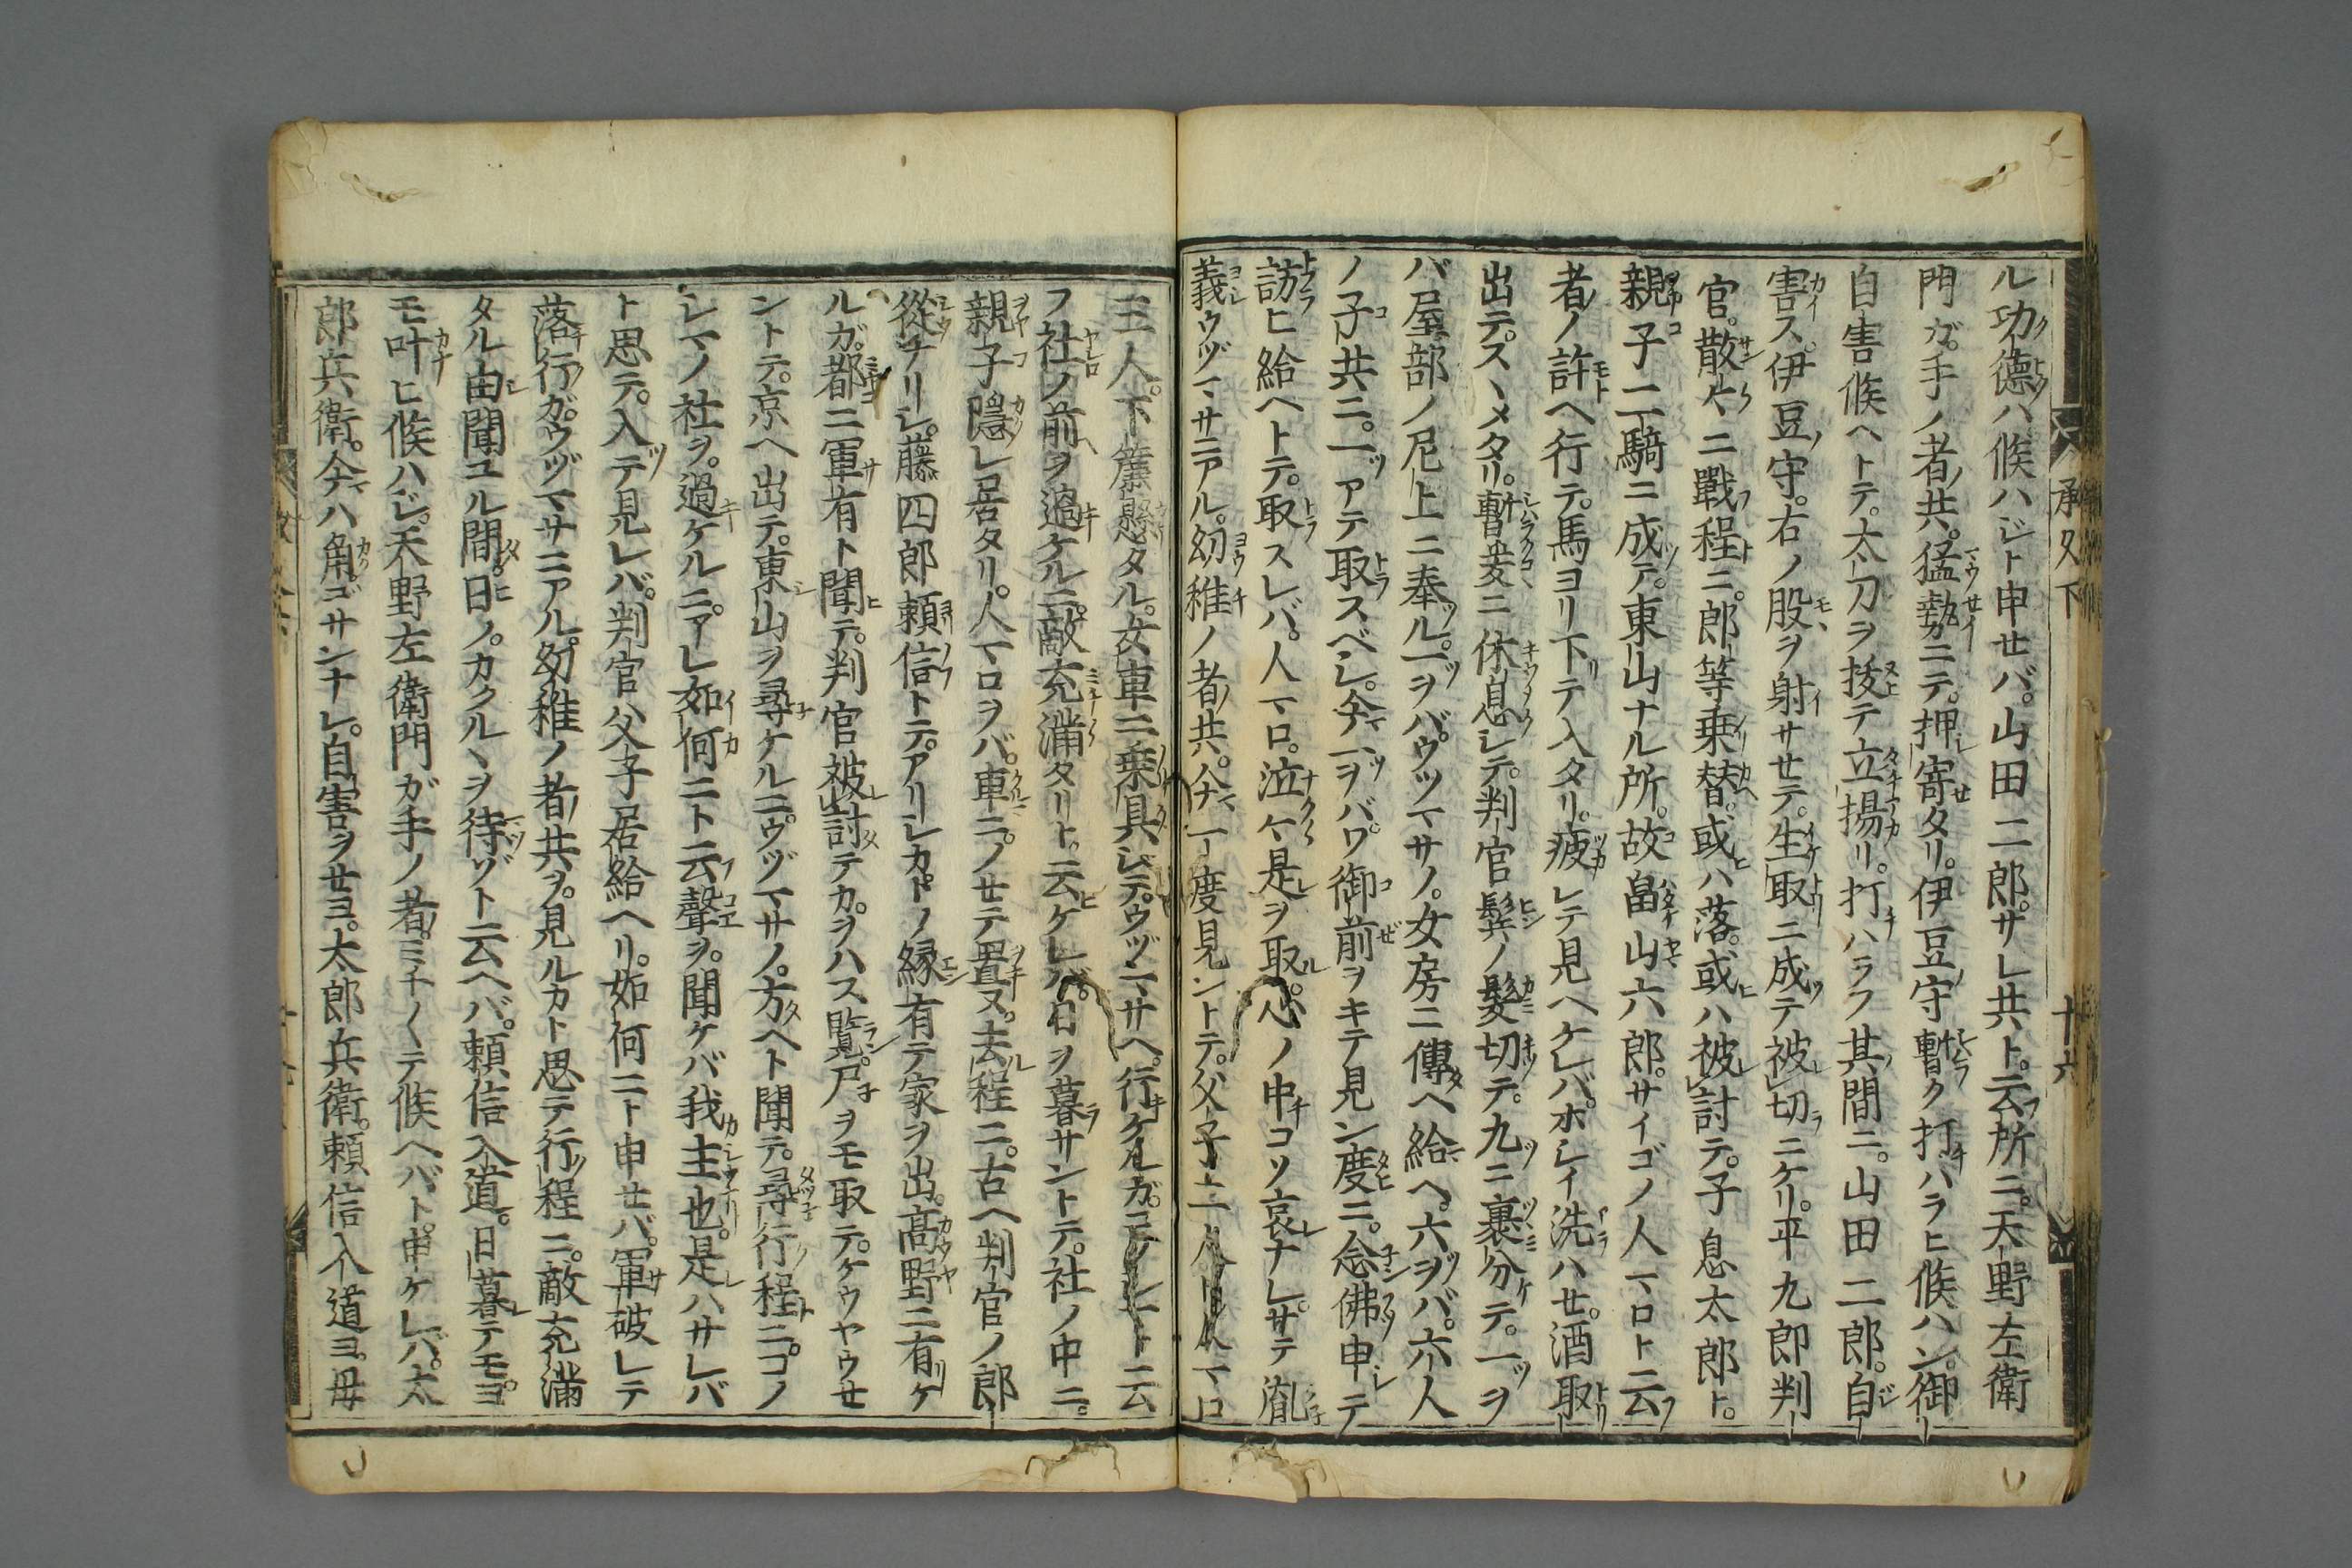 承久下
十六
ル功德ハ候ハジト申せバ。山田二郎。サレ共ト。云所ニ。天野左衛
門ガ。手ノ者共。猛勢ニテ。押寄タリ。伊豆守暫ク打ハラヒ候ハン。御
自害候ヘトテ。太刀ヲ拔テ立揚リ。打ハラフ其間ニ。山田二郎。自
害ス。伊豆守。右ノ股ヲ射サせテ。生取ニ成テ被切ニケリ。平九郎判
官。散々ニ戰程ニ。郎等乗替。或ハ落。或ハ被討テ。子息太郎ト。
親子二騎ニ成テ。東山ナル所。故畠山六郎。サイゴノ人マロト云
者ノ許ヘ行テ。馬ヨリ下テ入タリ。疲レテ見ヘケレバ。ホシイ洗ハせ。酒取
出テ。スヽメタリ。暫爰ニ休息シテ。判官鬢ノ髮切テ。九ニ裹分テ。一ヲ
バ屋部ノ尼上ニ奉ル。一ヲバ。ウツマサノ。女房ニ傳ヘ給ヘ。六ヲバ。六人
ノ子共ニ。一アテ取スベシ。今一ヲバ。ワ御前ヲキテ見ン度ニ。念佛申テ
訪ヒ給ヘトテ。取スレバ。人マロ。泣々是ヲ取。心ノ中コソ哀ナレ。サテ胤
義ウヅマサニアル。幼稚ノ者共。今一度見ントテ。父子二人人マロ
三人。下簾懸タル。女車ニ乗具シテ。ウヅマサヘ。行ケルガ。コノシマト云
フ社ノ前ヲ過ケルニ。敵充滿タリト。云ケレバ。日ヲ暮サントテ。社ノ中ニ。
親子隱レ居タリ。人マロヲバ。車ニ。ノせテ置ヌ。去程ニ。古ヘ判官ノ郎
從ナリシ。藤四郎頼信トテ。アリシカドノ縁有テ家ヲ出。高野ニ有ケ
ルガ。都ニ軍有ト聞テ。判官被討テカ。ヲハス覽。尸ヲモ取テ。ケウヤウせ
ントテ。京ヘ出テ。東山ヲ尋ケルニ。ウヅマサノ。方ヘト聞テ。尋行程ニ。コノ
シマノ社ヲ。過ケルニ。アレ如何ニト云聲ヲ。聞ケバ我主也。是ハサレバ
ト思テ。入テ見レバ。判官父子居給ヘリ。如何ニト申せバ。軍破レテ
落行ガ。ウヅマサニアル。幼稚ノ者共ヲ。見ルカト思テ行程ニ。敵充滿
タル由聞ユル間。日ノ。カクルヽヲ待ヅト云ヘバ。頼信入道。日暮テモ。ヨ
モ叶ヒ候ハジ。天野左衛門ガ手ノ者。ミチ〱テ候ヘバト。申ケレバ。太
郎兵衛。今ハ角ゴサンナレ。自害ヲせヨ。太郎兵衛。頼信入道ヨ。母